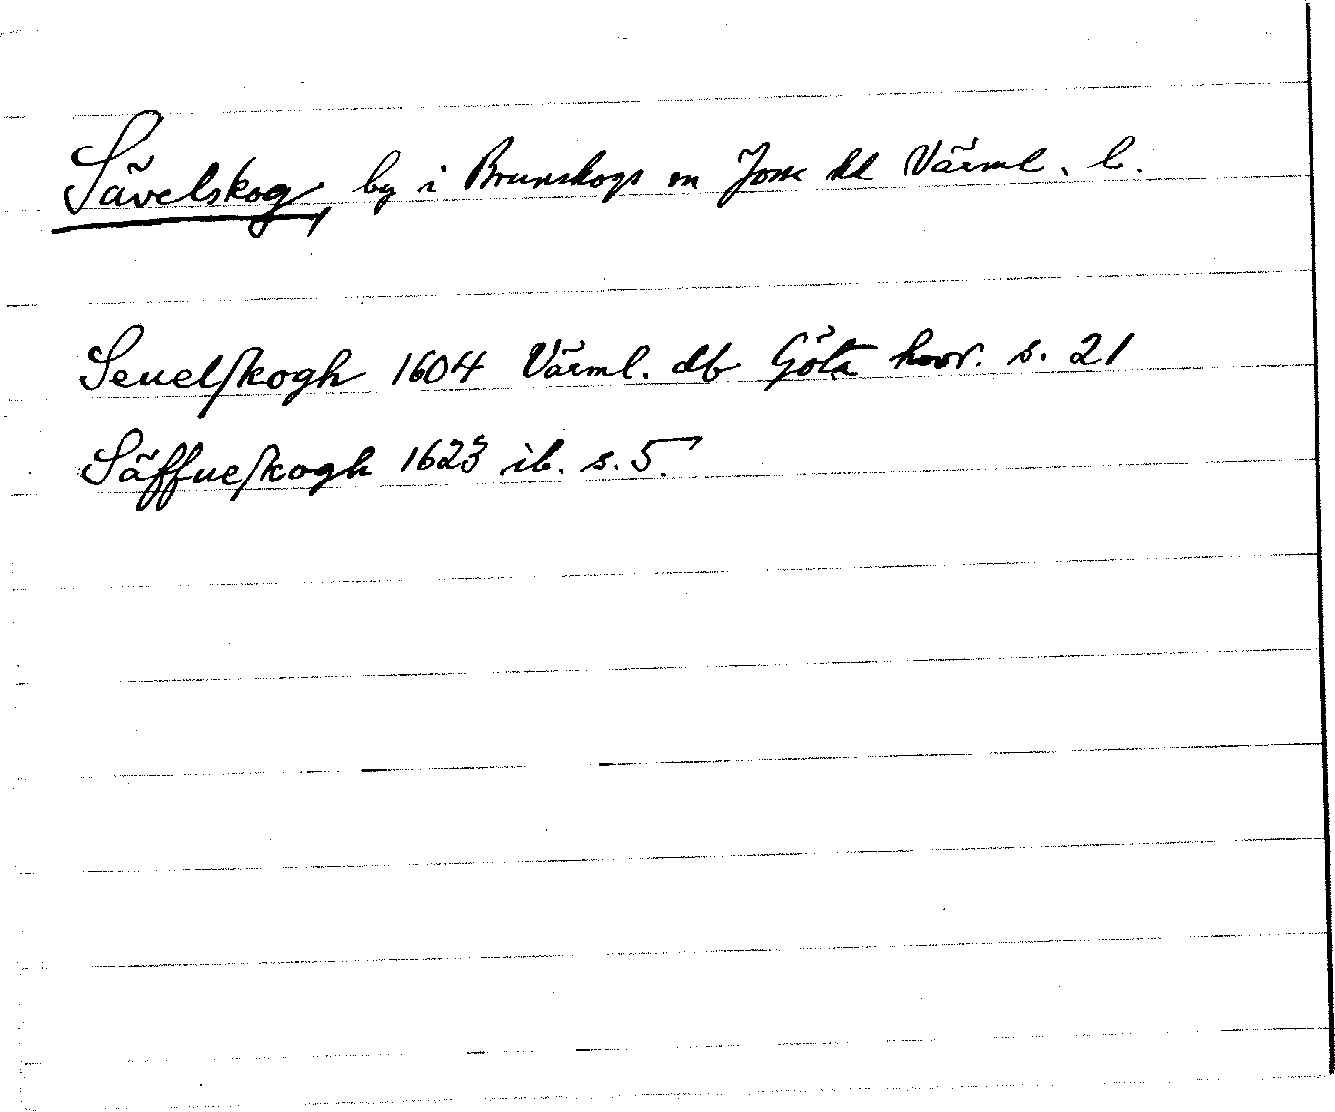 Sävelskog, by i Brunskogs sn Jösse hd Värml. l.
Seuelſkogh 1604 Värml. db Göta hovr. s. 21
Säffueſkogh 1623 ib. s. 5.